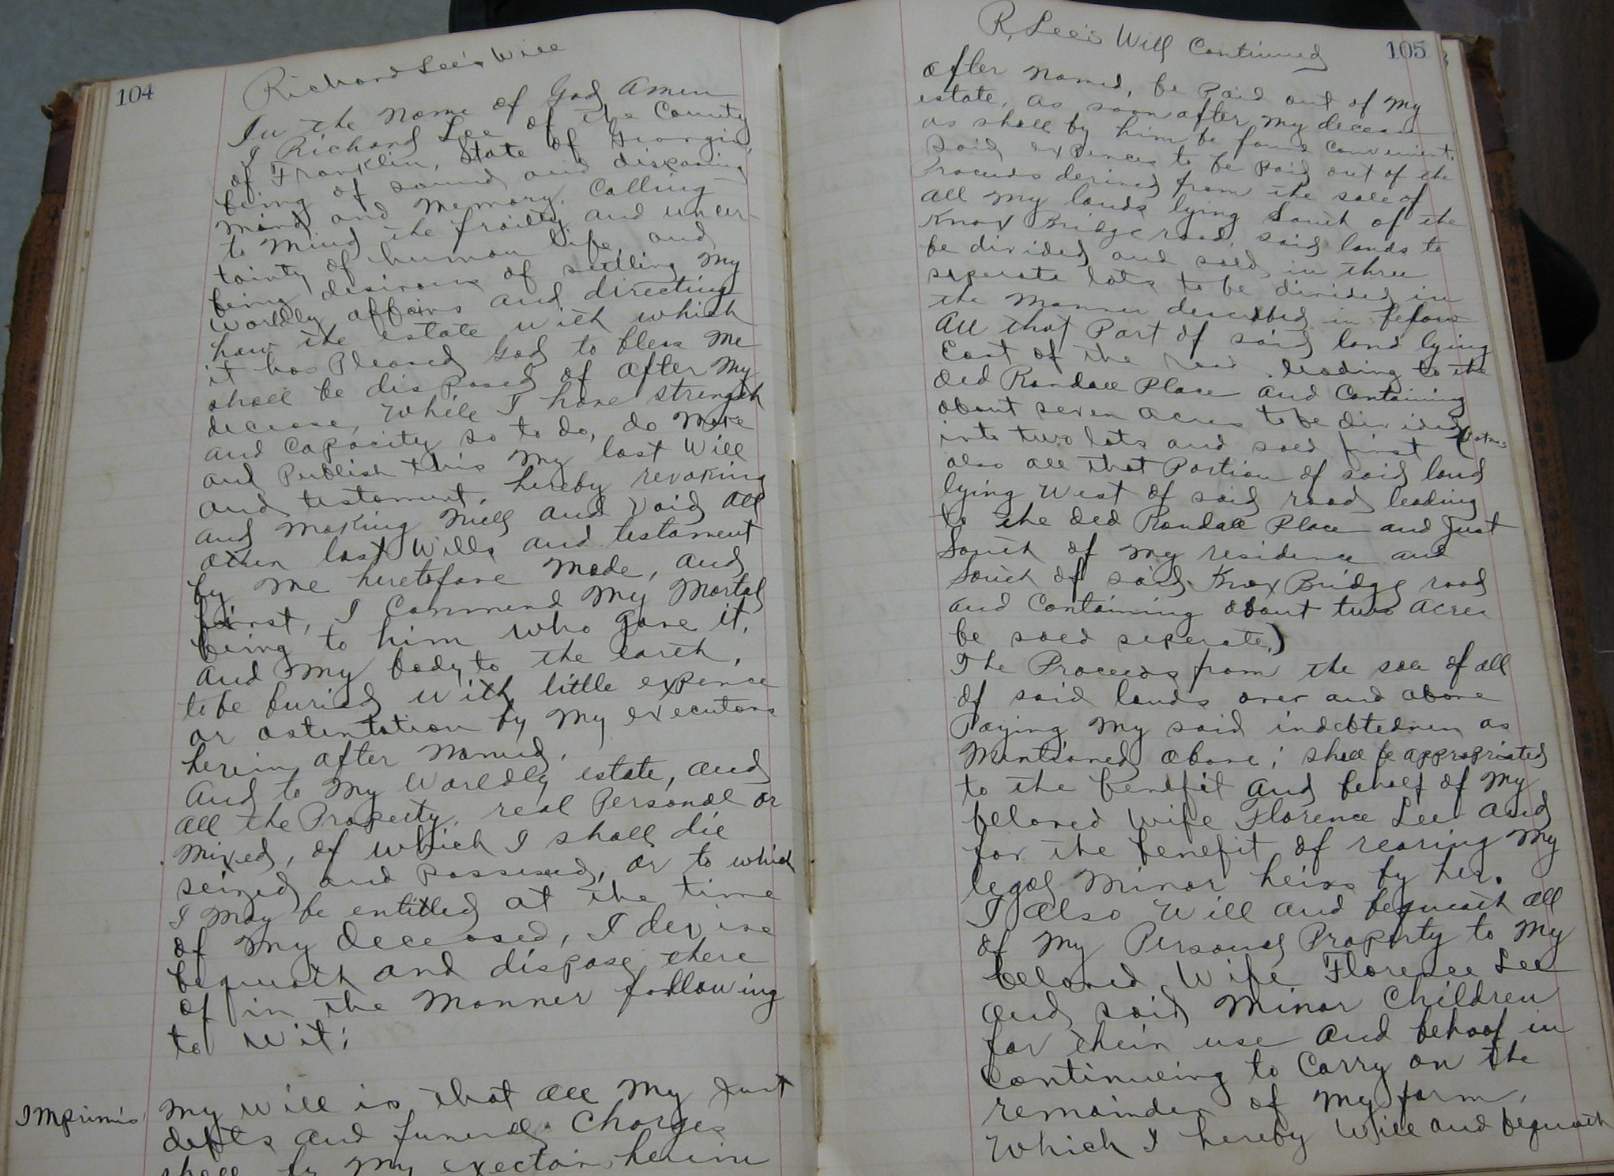 104
Richard Lee's Will
In the name of God Amen
I Richard Lee of the County
of Franklin, State of Georgia,
being of sound and disposing
mind and memory, Calling
to mind the frailty and uncer-
tainty of human life, and
being desirous of settling my
worldly affairs and directing
how the estate with which
it has Pleased God to bless me
shall be disposed of after my
decease, while I have strength
and Capacity so to do, do make
and Publish this my last Will
and testament, hereby revoking
and making Null and Void all
other last Wills and testament
by me heretofore made, and
first, I Commend my Mortal
being to him who gave it,
and my body to the earth,
to be buried with little expence
or ostentation by my executors
herein after named.
And to my Worldly estate, and
all the Property, real Personal or
mixed, of which I shall die
seized and possessed, or to which
I may be entitled at the time
of my deceased, I devise
bequeath and dispose there
of in the Manner following
to wit;
Imprimis My will is that all my just
debts and funeral Charges
shall by my exector herein
R. Lee's Will Continued 105
after named, be Paid out of my
estate, as soon after my decease
as shall by him be found convenient.
Said expences to be paid out of the
Proceeds derived from the sale of
all my lands lying South of the
Knox Bridge road, said lands to
be divided and sold in three
seperate lots to be divided in
the manner described in below
All that Part of said land lying
East of the leading to the
Old Randall Place and Containing
about seven acres to be divided
into two lots and sold first
also all that Portion of said land
lying West of said road leading
to the Old Randall Place and just
South of my residence and
South of said Knox Bridge road
and Containing about two acres
be sold seperate)
The Proceeds from the sale of all
of said lands over and above
Paying my said indebtedness as
Mentioned above; shall be appropriated
to the benefit and behalf of my
beloved Wife Florence Lee and
for the benefit of rearing my
legal minor heirs by her.
I also Will and bequeath all
of my Personal Property to my
beloved Wife Florence Lee
and said Minor Children
for their use and behoof in
Continueing to Carry on the
remainder of my farm,
Which I hereby Will and bequeath